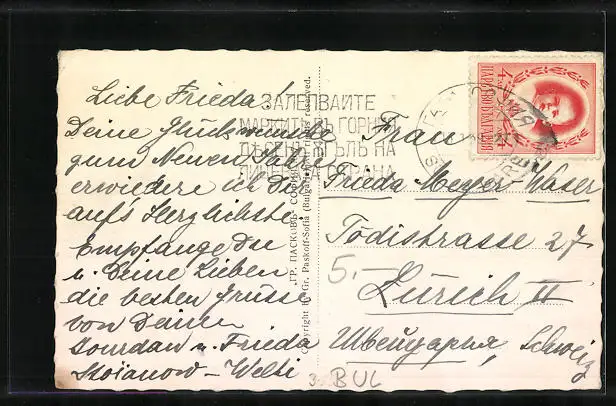 Liebe Frieda!
Deine Glückwünsche
zum Neuen Jahre
erwiedere ich Dir
auf's Herzlichste.
Empfange Du
u. Deine Lieben
die besten Grüsse
von Deinen
Jourdan u. Frieda
Stoianow - Welti
ЗАЛЕПВАЙТЕ
МАРКИТѢ ВЪ ГОРНИЯ
ДЕСЕНЪ ЪГЪЛЪ НА
ЛИЦЕВАТА СТРАНА
ГР. ПАСКОВЪ - СОФИЯ
Copyright by Gr. Paskoff-Sofia (Bulgarie) reserved.
ЦАРСТВО БЪЛГАРИЯ
4
Frau
Frieda Meyer-Waser
Tödistrasse 27
5.
Zürich II
Швейцария, Schweiz
BUL